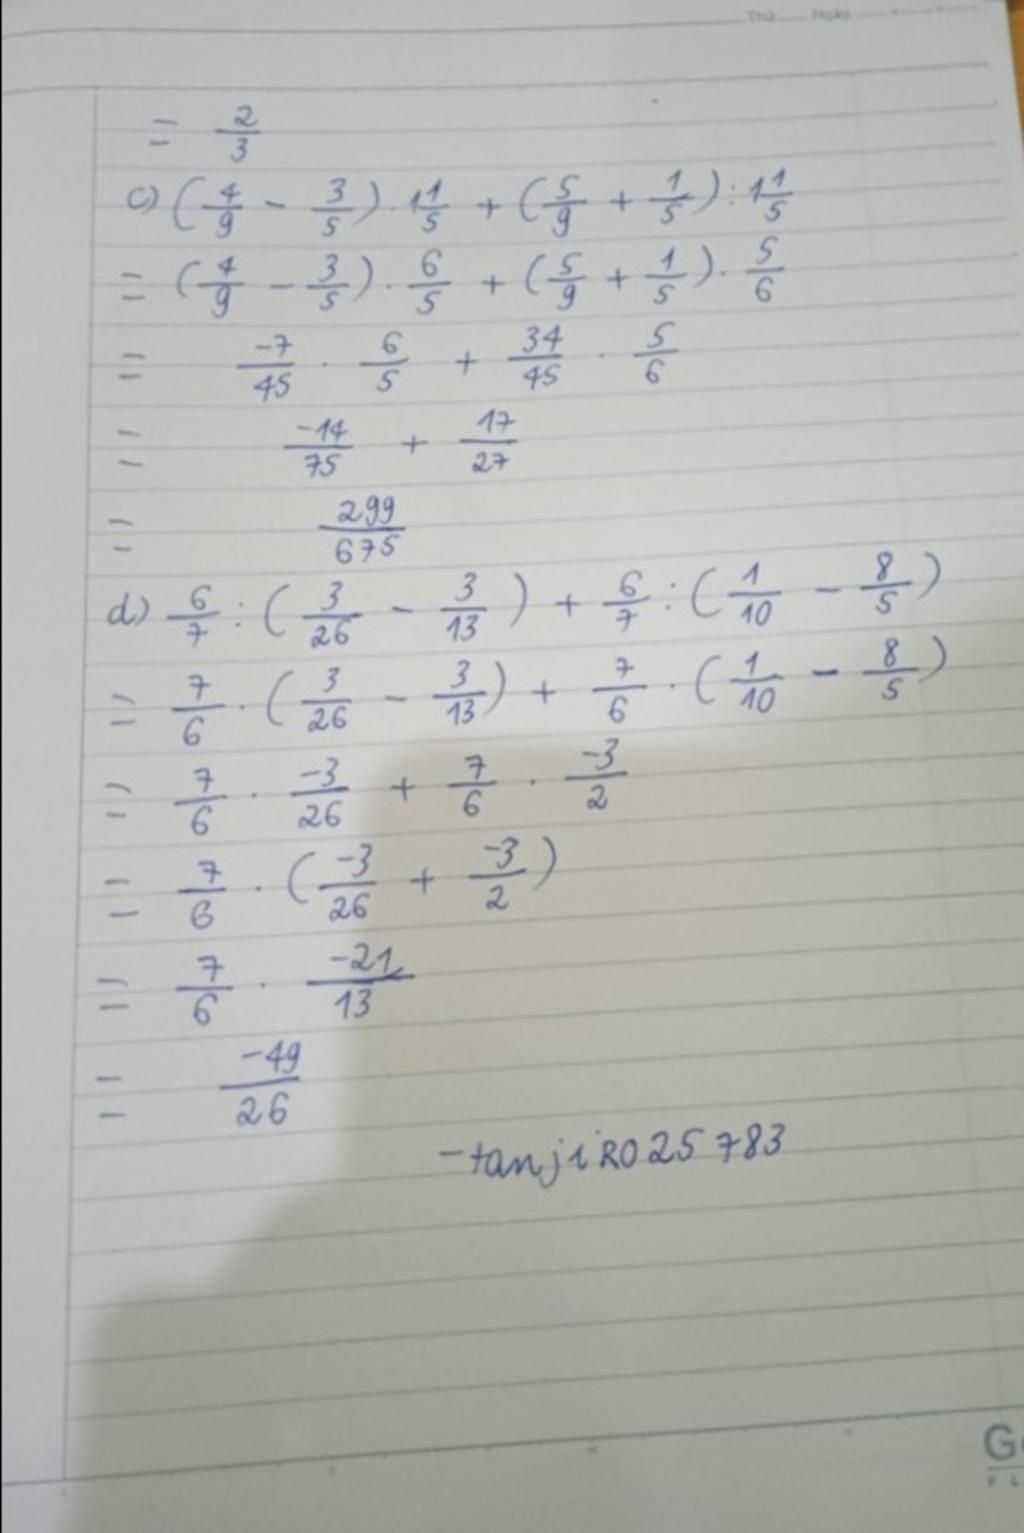 Thứ Ngày
= 2/3
c) (4/9 - 3/5) . 1 1/5 + (5/9 + 1/5) : 1 1/5
= (4/9 - 3/5) . 6/5 + (5/9 + 1/5) . 5/6
= -7/45 . 6/5 + 34/45 . 5/6
= -14/75 + 17/27
= 299/675
d) 6/7 : (3/26 - 3/13) + 6/7 : (1/10 - 8/5)
= 7/6 . (3/26 - 3/13) + 7/6 . (1/10 - 8/5)
= 7/6 . -3/26 + 7/6 . -3/2
= 7/6 . (-3/26 + -3/2)
= 7/6 . -21/13
= -49/26
-tanjiRO25783